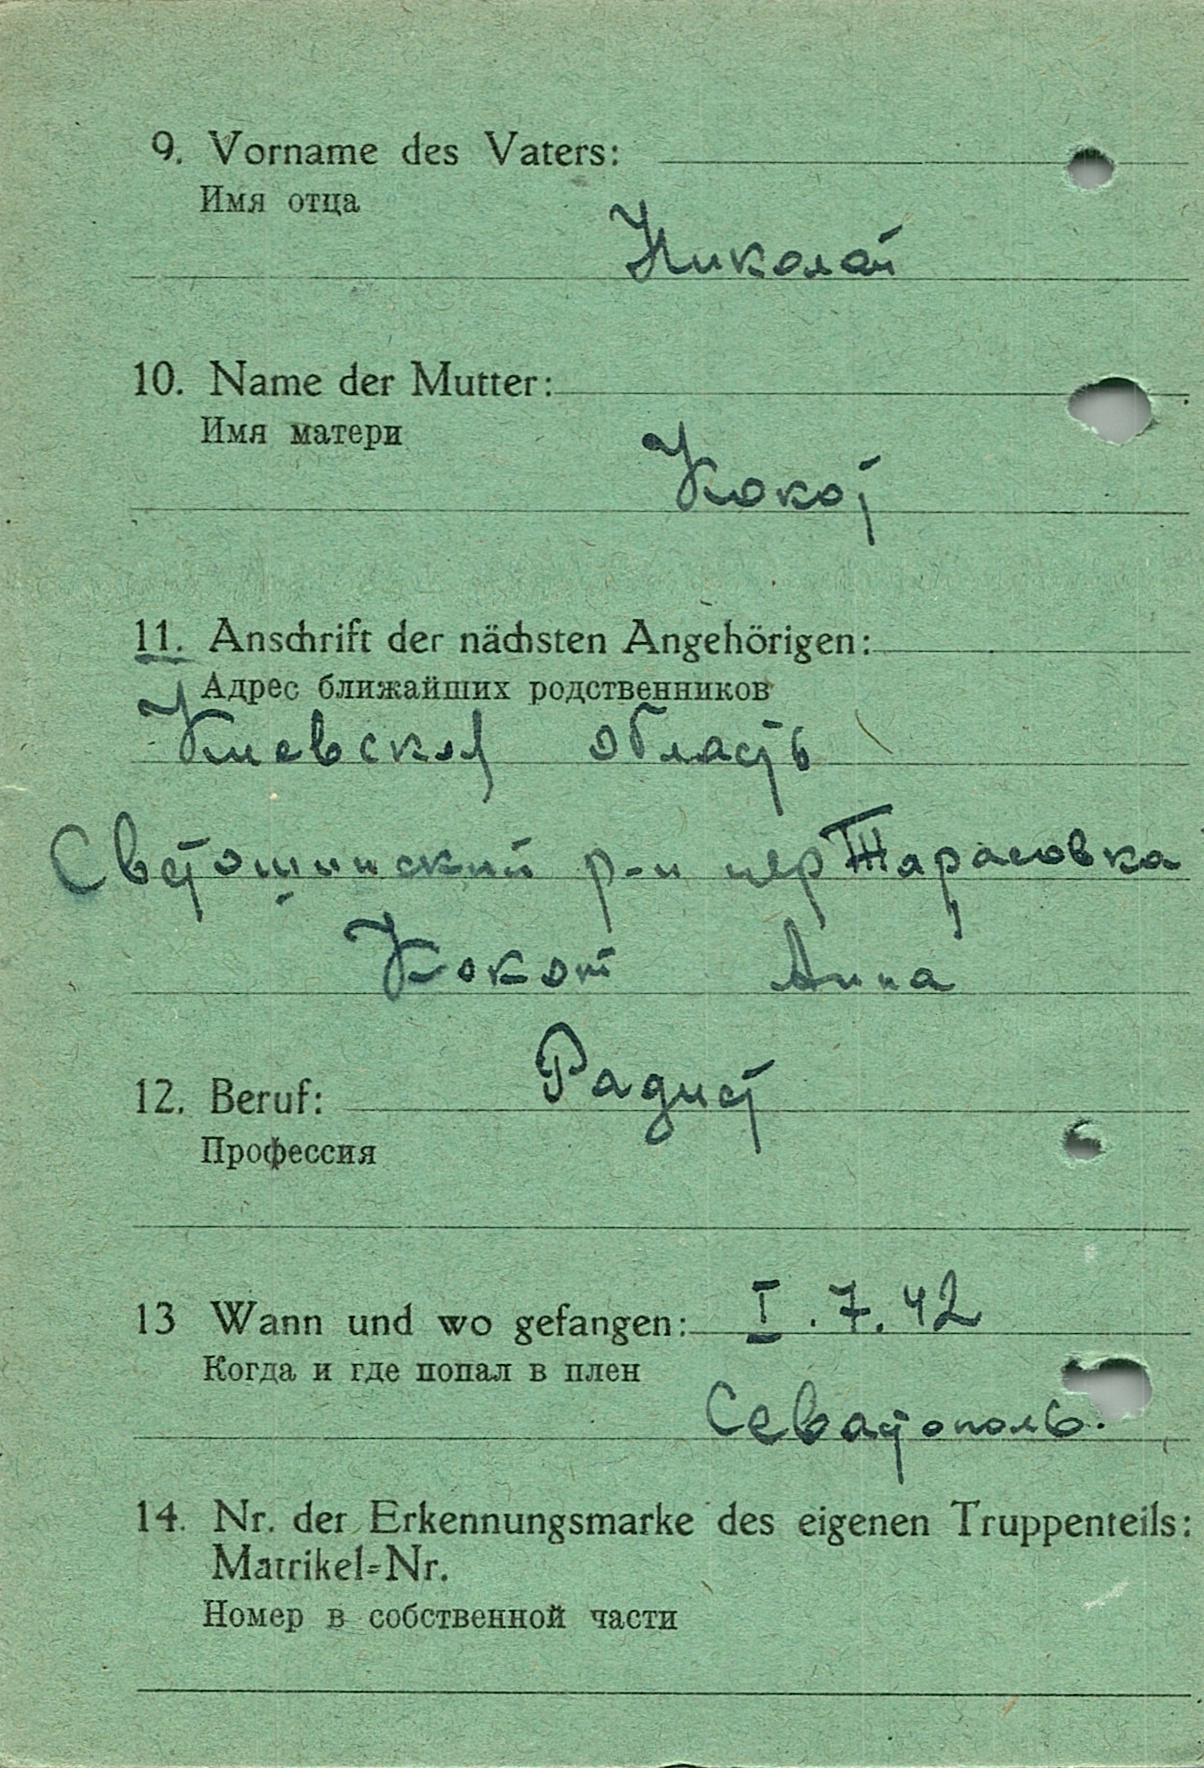 9. Vorname des Vaters:
Имя отца
Николай
10. Name der Mutter:
Имя матери
Кокот
11. Anschrift der nächsten Angehörigen:
Адрес ближайших родственников
Киевская область
Светошинский р-н Тарасовка
Кокот Анна
12. Beruf: Радист
Профессия
13 Wann und wo gefangen: I.7.42
Когда и где попал в плен
Севастополь.
14. Nr. der Erkennungsmarke des eigenen Truppenteils:
Matrikel=Nr.
Номер в собственной части